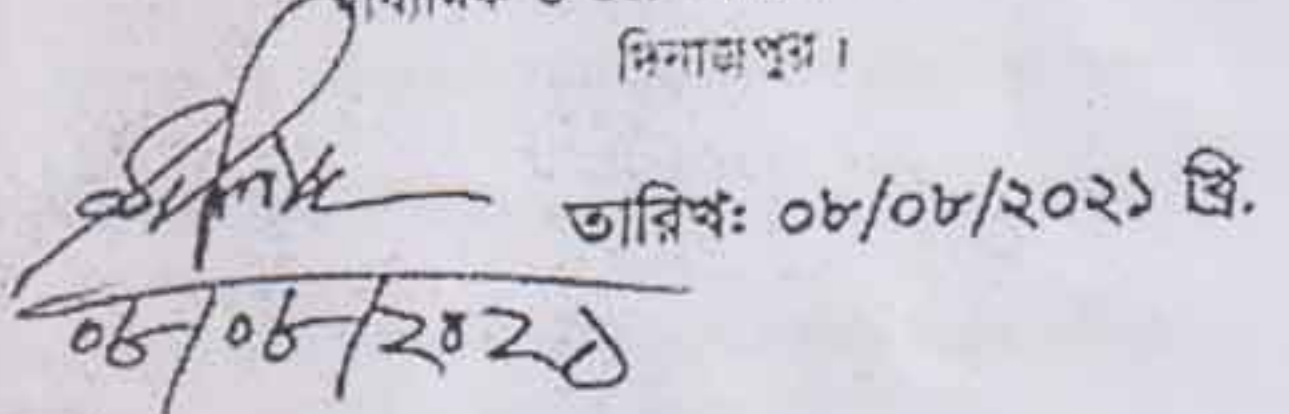 দিনাজপুর।
তারিখ: ০৮/০৮/২০২১ খ্রি.
০৮/০৮/২০২১